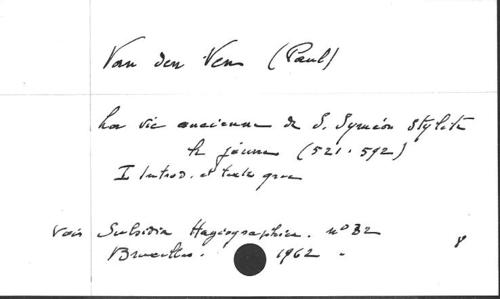 Van den Ven (Paul)
La vie ancienne de S. Syméon Stylite
le jeune (521-592)
I Introd. et texte grec
Voir Subsidia Hagiographica. n° 32
Bruxelles. 1962.
8